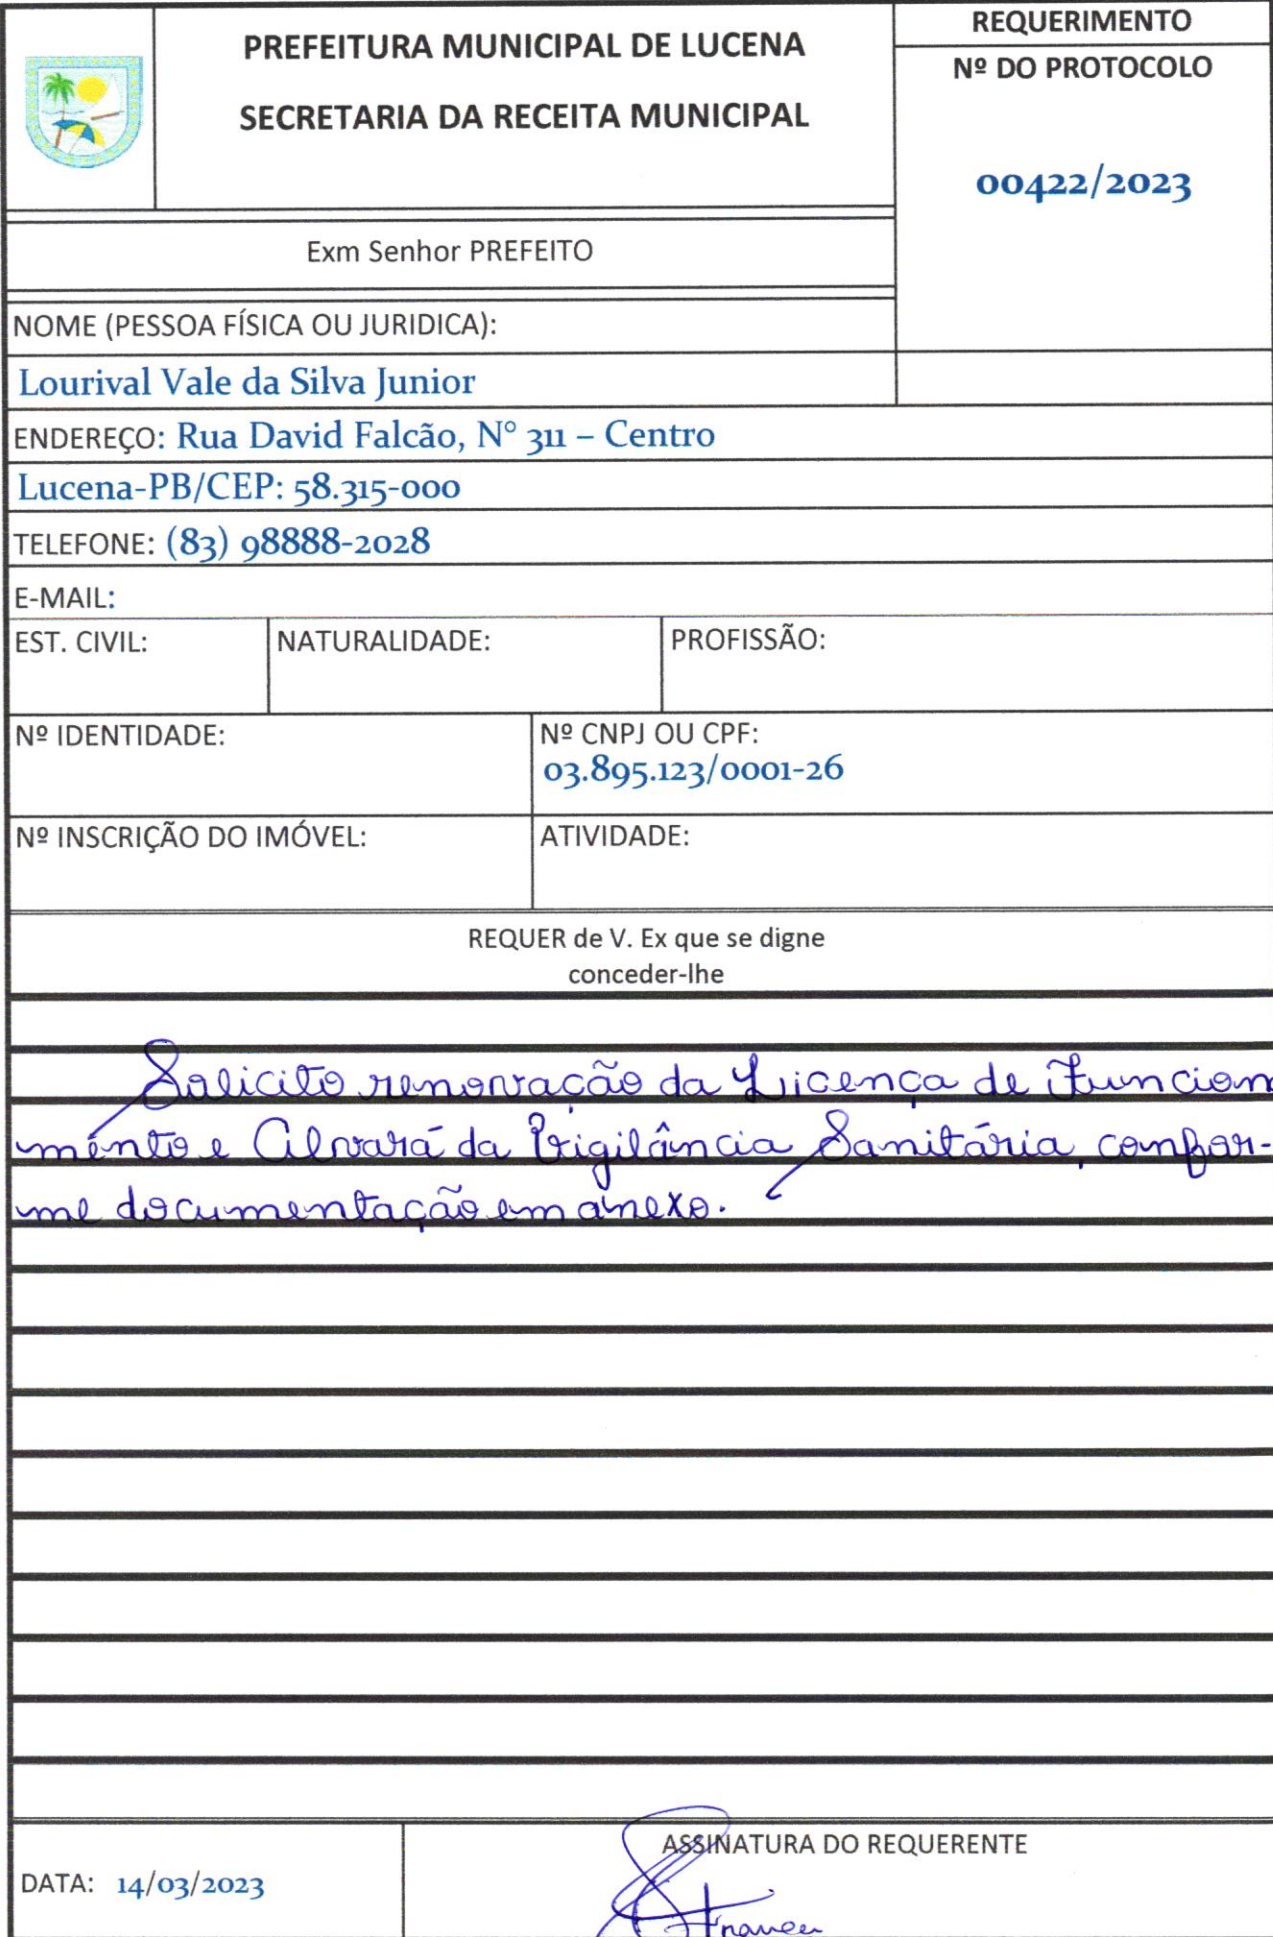 PREFEITURA MUNICIPAL DE LUCENA
SECRETARIA DA RECEITA MUNICIPAL
REQUERIMENTO
Nº DO PROTOCOLO
00422/2023
Exm Senhor PREFEITO
NOME (PESSOA FÍSICA OU JURIDICA):
Lourival Vale da Silva Junior
ENDEREÇO: Rua David Falcão, N° 311 – Centro
Lucena-PB/CEP: 58.315-000
TELEFONE: (83) 98888-2028
E-MAIL:
EST. CIVIL: NATURALIDADE: PROFISSÃO:
Nº IDENTIDADE: Nº CNPJ OU CPF:
03.895.123/0001-26
Nº INSCRIÇÃO DO IMÓVEL: ATIVIDADE:
REQUER de V. Ex que se digne
conceder-lhe
Solicito renovação da Licença de Funcion
mento e Alvará da Vigilância Sanitária, confor-
me documentação em anexo.
ASSINATURA DO REQUERENTE
DATA: 14/03/2023